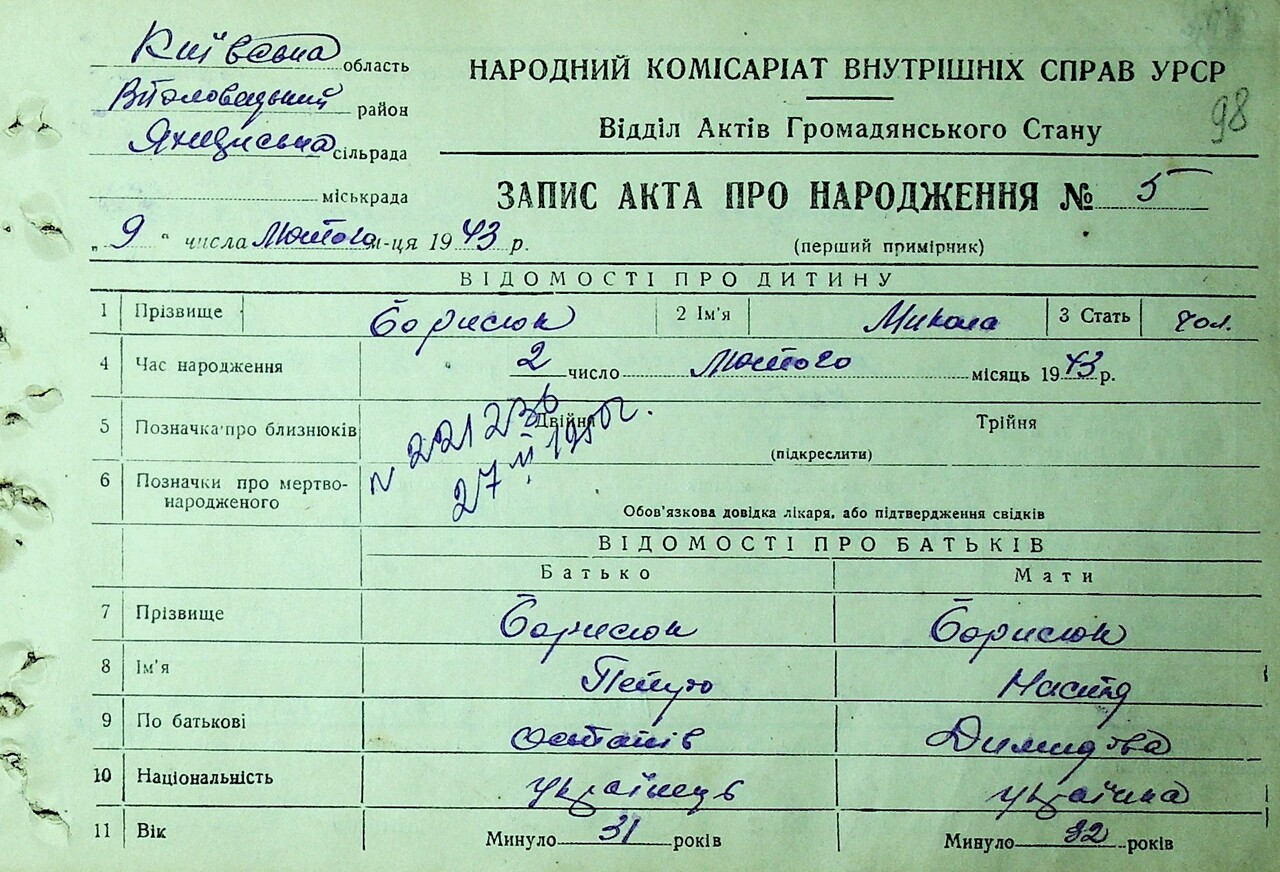 Київська область
район
сільрада
міськрада
НАРОДНИЙ КОМІСАРІАТ ВНУТРІШНІХ СПРАВ УРСР
98
Відділ Актів Громадянського Стану
ЗАПИС АКТА ПРО НАРОДЖЕННЯ № 5
„ 9 “ числа Лютого м-ця 1943 р.
(перший примірник)
ВІДОМОСТІ ПРО ДИТИНУ
1 Прізвище Борисюк 2 Ім'я Микола 3 Стать чол.
4 Час народження 2 число Лютого місяць 1943 р.
5 Позначка про близнюків Двійня Трійня
(підкреслити)
N 221236
27 VI 1950 г.
6 Позначки про мертво-
народженого
Обов'язкова довідка лікаря, або підтвердження свідків
ВІДОМОСТІ ПРО БАТЬКІВ
Батько Мати
7 Прізвище Борисюк Борисюк
8 Ім'я Петро Настя
9 По батькові Остапів
10 Національність українець українка
11 Вік Минуло 31 років Минуло 32 років